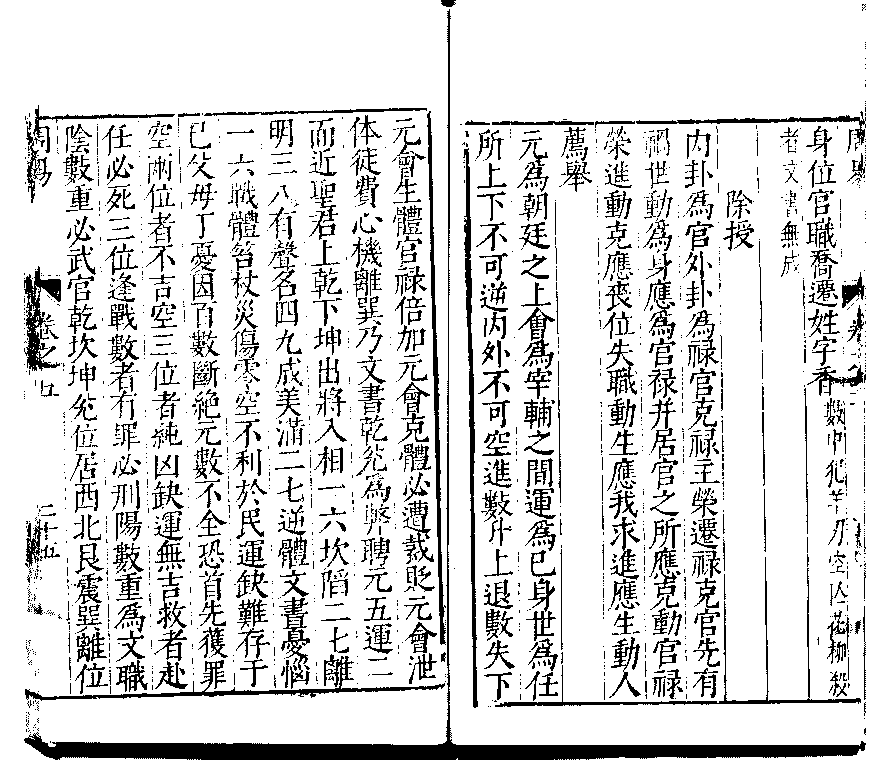 身位官職喬遷姓字香數中犯羊刃空亡花柳殺
者文書無成
除授
内卦爲官外卦爲禄官克禄主榮遷禄克官先有
禍世動爲身應爲官禄并居官之所應克動官禄
榮進動克應喪位失職動生應我求進應生動人
薦舉
元爲朝廷之上會爲宰輔之間運爲已身世爲任
所上下不可逆内外不可空進數升上退數失下
元會生體官禄倍加元會克體必遭裁貶元會泄
体徒費心機離巽乃文書乾兊爲幣聘元五運二
而近聖君上乾下坤出將入相一六坎陷二七離
明三八有聲名四九成美滿二七逆體文書憂惱
一六職體笞杖災傷零空不利於民運缺難存于
已父母丁憂因百數斷絶元數不全恐首先獲罪
空兩位者不吉空三位者純凶缺運無吉救者赴
任必死三位逢戰數者有罪必刑陽數重爲文職
陰數重必武官乾坎坤兊位居西北艮震巽離位
周易
卷之五
二十五